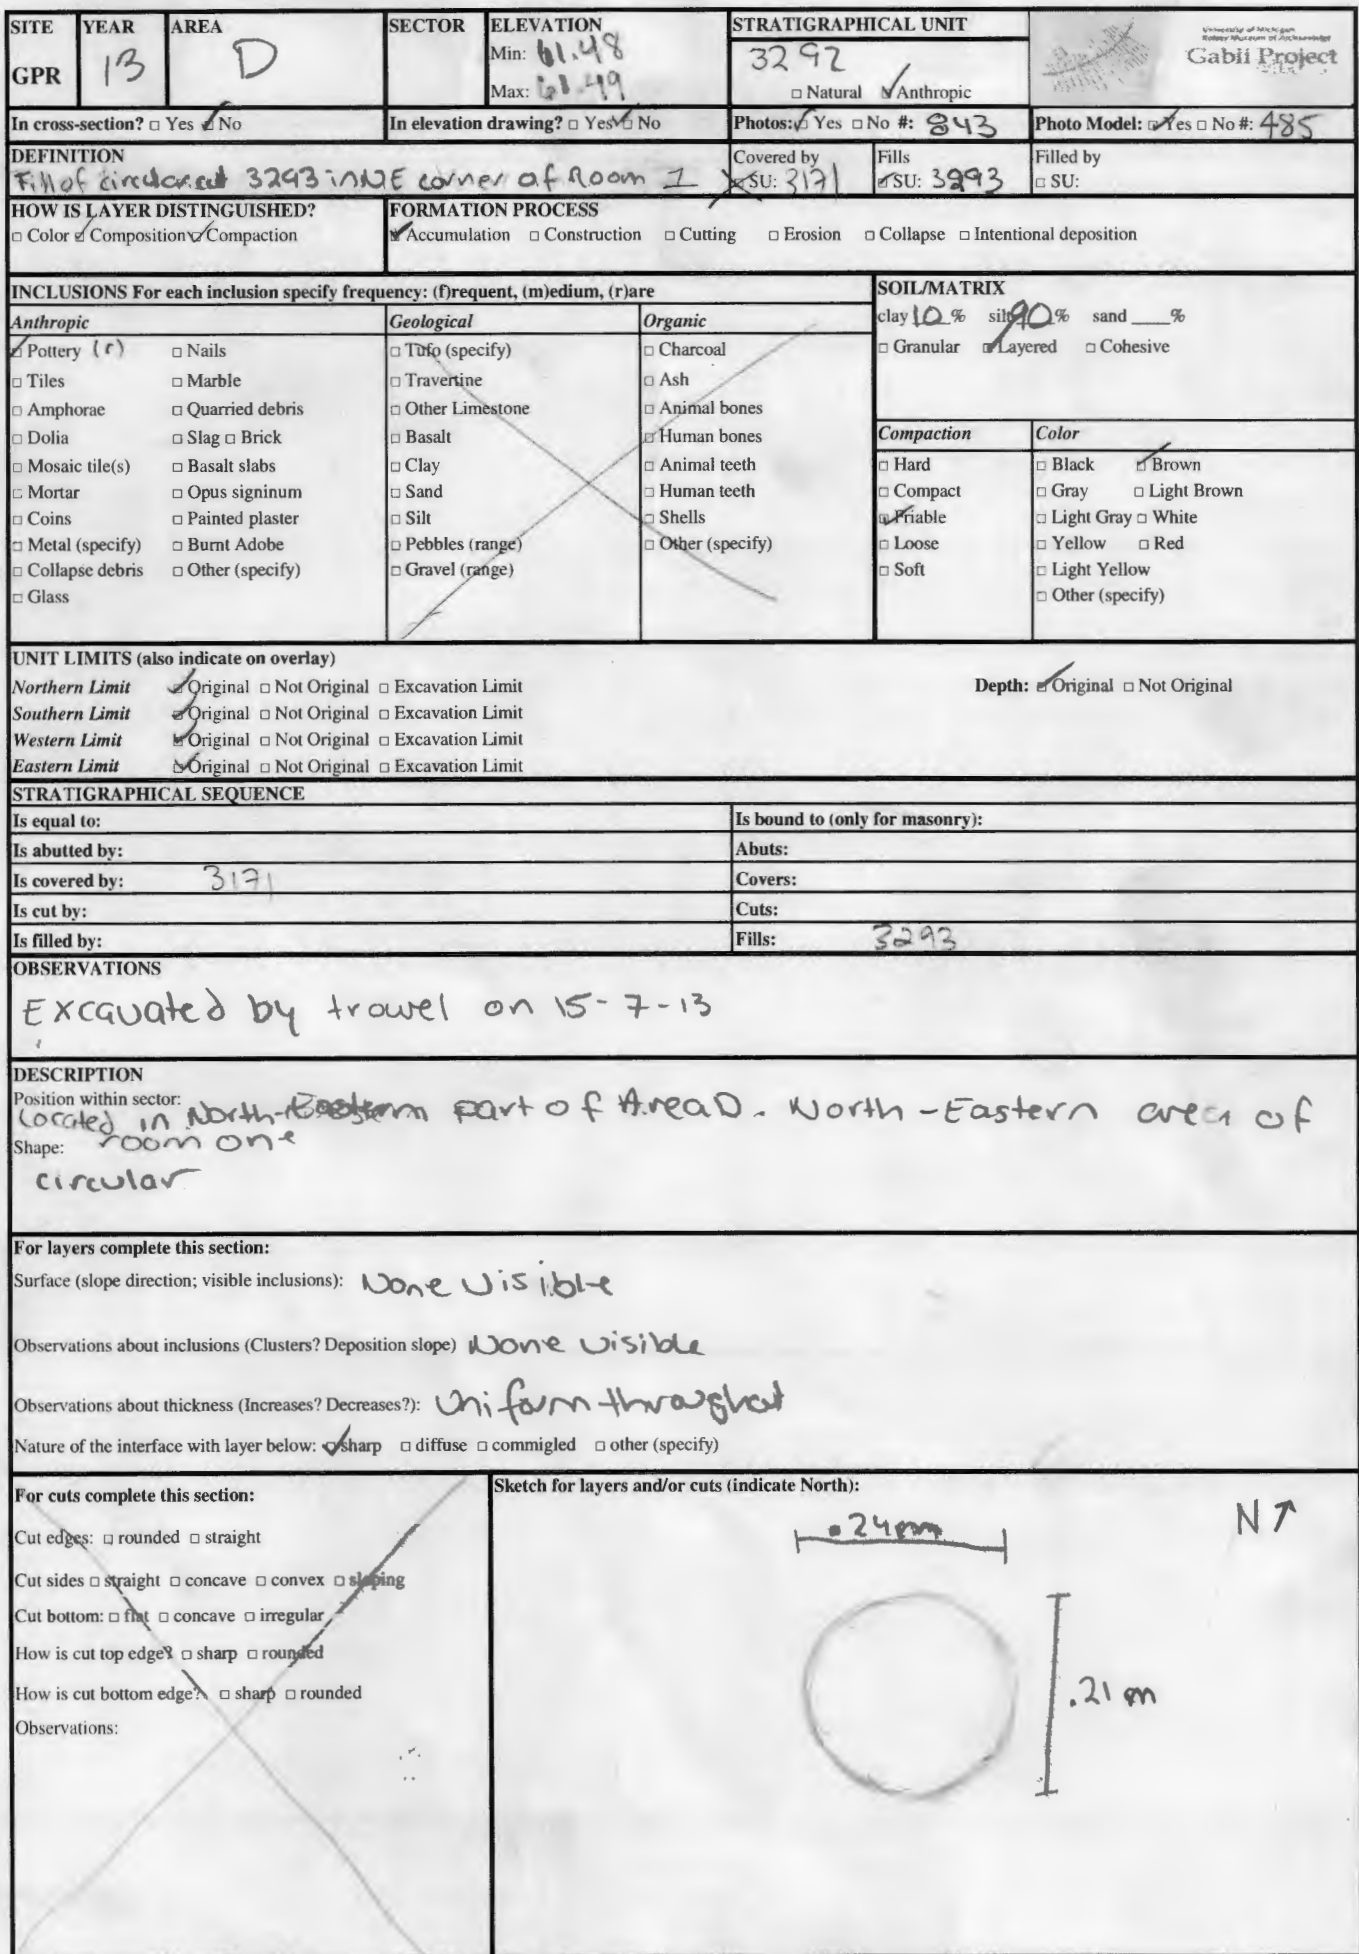 SITE YEAR AREA SECTOR ELEVATION STRATIGRAPHICAL UNIT
GPR 13 D Min: 61.48 3292
Max: 61.49 □ Natural ☑ Anthropic
Gabii Project
In cross-section? □ Yes ☑ No In elevation drawing? □ Yes ☑ No Photos: ☑ Yes □ No #: 843 Photo Model: ☑ Yes □ No #: 485
DEFINITION
Fill of circular cut 3293 in NE corner of Room 1
Covered by ☑ SU: 3171
Fills ☑ SU: 3293
Filled by □ SU:
HOW IS LAYER DISTINGUISHED?
□ Color ☑ Composition ☑ Compaction
FORMATION PROCESS
☑ Accumulation □ Construction □ Cutting □ Erosion □ Collapse □ Intentional deposition
INCLUSIONS For each inclusion specify frequency: (f)requent, (m)edium, (r)are
Anthropic
☑ Pottery (r) □ Nails
□ Tiles □ Marble
□ Amphorae □ Quarried debris
□ Dolia □ Slag □ Brick
□ Mosaic tile(s) □ Basalt slabs
□ Mortar □ Opus signinum
□ Coins □ Painted plaster
□ Metal (specify) □ Burnt Adobe
□ Collapse debris □ Other (specify)
□ Glass
Geological
□ Tufo (specify)
□ Travertine
□ Other Limestone
□ Basalt
□ Clay
□ Sand
□ Silt
□ Pebbles (range)
□ Gravel (range)
Organic
□ Charcoal
□ Ash
□ Animal bones
□ Human bones
□ Animal teeth
□ Human teeth
□ Shells
□ Other (specify)
SOIL/MATRIX
clay 10 % silt 90 % sand ____%
□ Granular ☑ Layered □ Cohesive
Compaction
□ Hard
□ Compact
☑ Friable
□ Loose
□ Soft
Color
□ Black ☑ Brown
□ Gray □ Light Brown
□ Light Gray □ White
□ Yellow □ Red
□ Light Yellow
□ Other (specify)
UNIT LIMITS (also indicate on overlay)
Northern Limit ☑ Original □ Not Original □ Excavation Limit Depth: ☑ Original □ Not Original
Southern Limit ☑ Original □ Not Original □ Excavation Limit
Western Limit ☑ Original □ Not Original □ Excavation Limit
Eastern Limit ☑ Original □ Not Original □ Excavation Limit
STRATIGRAPHICAL SEQUENCE
Is equal to: Is bound to (only for masonry):
Is abutted by: Abuts:
Is covered by: 3171 Covers:
Is cut by: Cuts:
Is filled by: Fills: 3293
OBSERVATIONS
Excavated by trowel on 15-7-13
DESCRIPTION
Position within sector:
Located in North-Eastern part of Area D. North-Eastern area of
room one
Shape:
circular
For layers complete this section:
Surface (slope direction; visible inclusions): None visible
Observations about inclusions (Clusters? Deposition slope) None visible
Observations about thickness (Increases? Decreases?): Uniform throughout
Nature of the interface with layer below: ☑ sharp □ diffuse □ commigled □ other (specify)
For cuts complete this section:
Cut edges: □ rounded □ straight
Cut sides □ straight □ concave □ convex □ sloping
Cut bottom: □ flat □ concave □ irregular
How is cut top edge? □ sharp □ rounded
How is cut bottom edge? □ sharp □ rounded
Observations:
Sketch for layers and/or cuts (indicate North):
N ↑
.24 m
.21 m